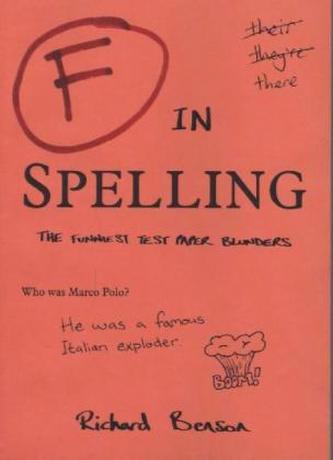 their
they're
there
F
IN
SPELLING
THE FUNNIEST TEST PAPER BLUNDERS
Who was Marco Polo?
He was a famous
Italian exploder.
BOOM!
Richard Benson